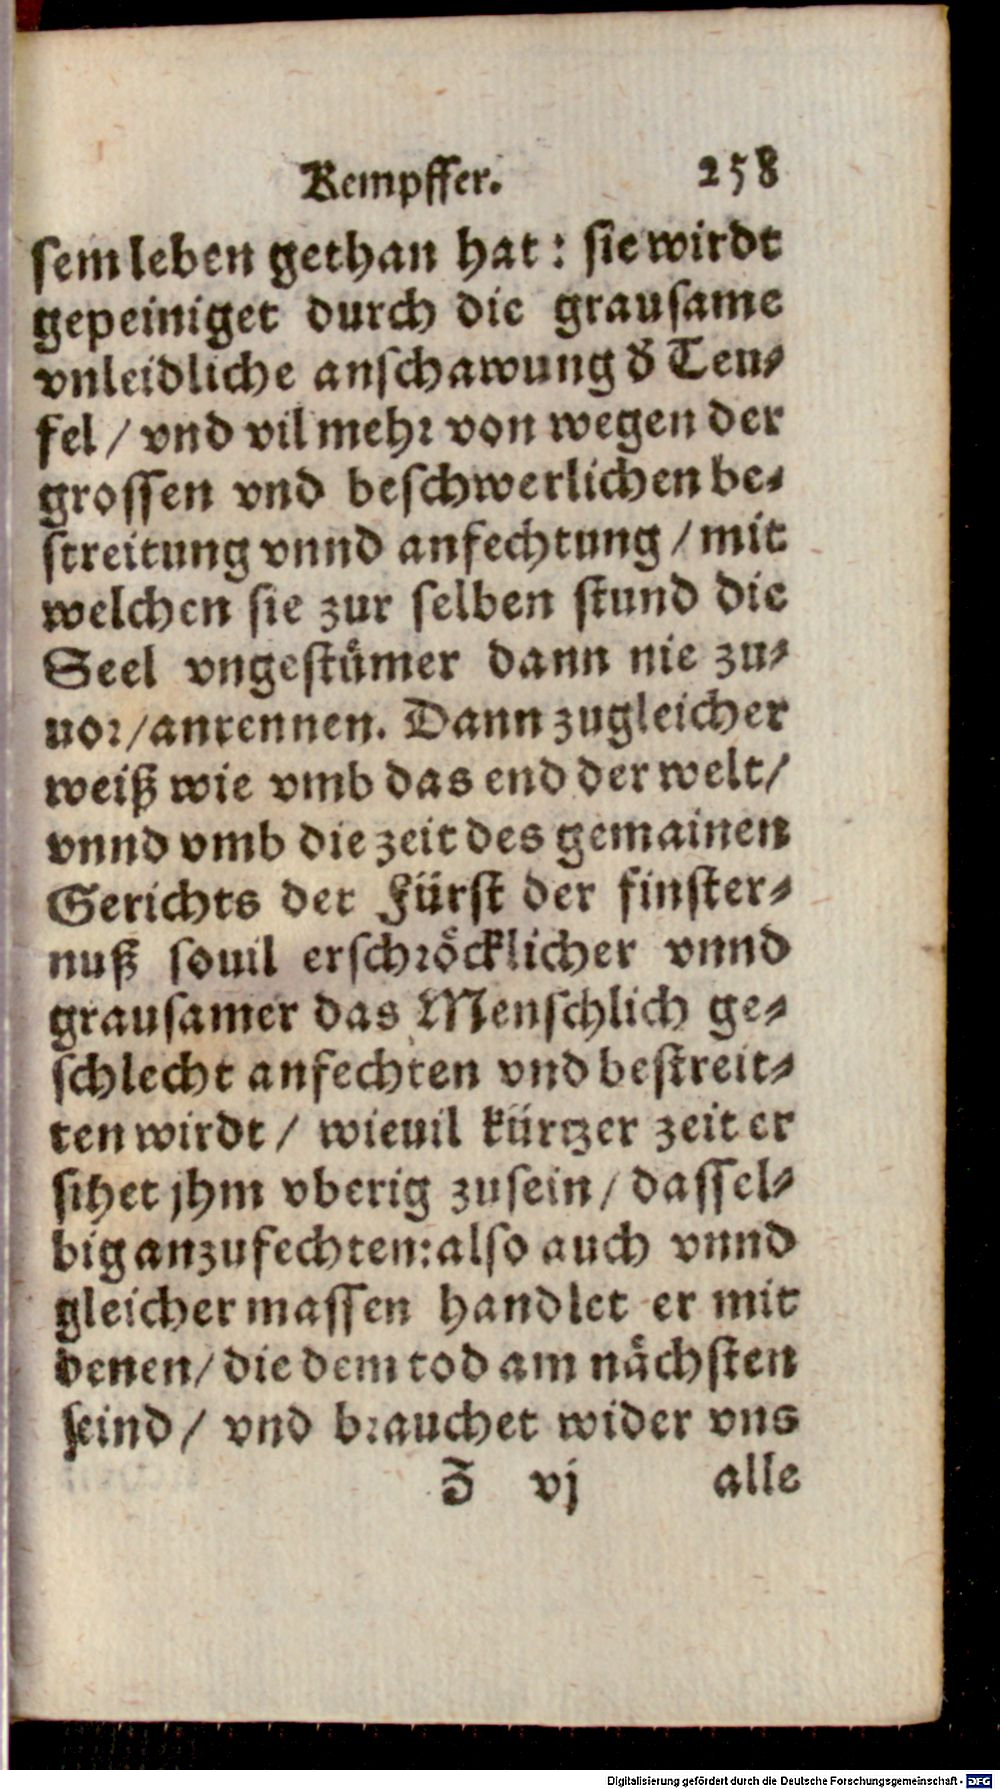 Kempffer. 258
sem leben gethan hat: sie wirdt
gepeiniget durch die grausame
vnleidliche anschawung đ Teu-
fel / vnd vil mehr von wegen der
grossen vnd beschwerlichen be-
streitung vnnd anfechtung / mit
welchen sie zur selben stund die
Seel vngestümer dann nie zu-
uor / anrennen. Dann zugleicher
weiß wie vmb das end der welt /
vnnd vmb die zeit des gemainen
Gerichts der Fürst der finster-
nuß souil erschröcklicher vnnd
grausamer das Menschlich ge-
schlecht anfechten vnd bestreit-
ten wirdt / wieuil kürtzer zeit er
sihet jhm vberig zusein / dassel-
big anzufechten: also auch vnnd
gleicher massen handlet er mit
denen / die dem tod am nächsten
seind / vnd brauchet wider vns
Z vj alle
Digitalisierung gefördert durch die Deutsche Forschungsgemeinschaft - DFG